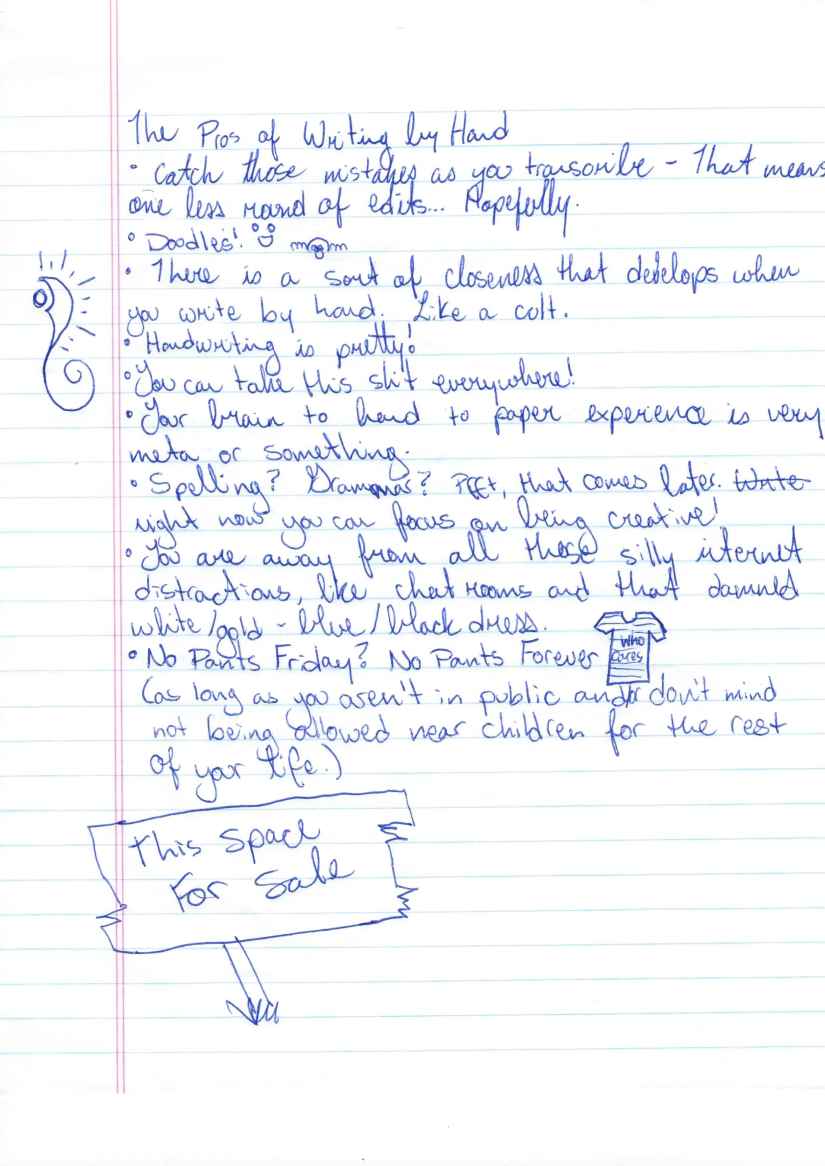 The Pros of Writing by Hand
• Catch those mistakes as you transcribe - That means
one less round of edits... Hopefully.
• Doodles!
• There is a sort of closeness that develops when
you write by hand. Like a cult.
• Handwriting is pretty!
• You can take this shit everywhere!
• Your brain to hand to paper experience is very
meta or something.
• Spelling? Grammar? Pfft, that comes later. Write
right now you can focus on being creative!
• You are away from all those silly internet
distractions, like chat rooms and that damned
white/gold - blue/black dress.
• No Pants Friday? No Pants Forever
WHO
Cares
(as long as you aren't in public and/or don't mind
not being allowed near children for the rest
of your life.)
This Space
For Sale